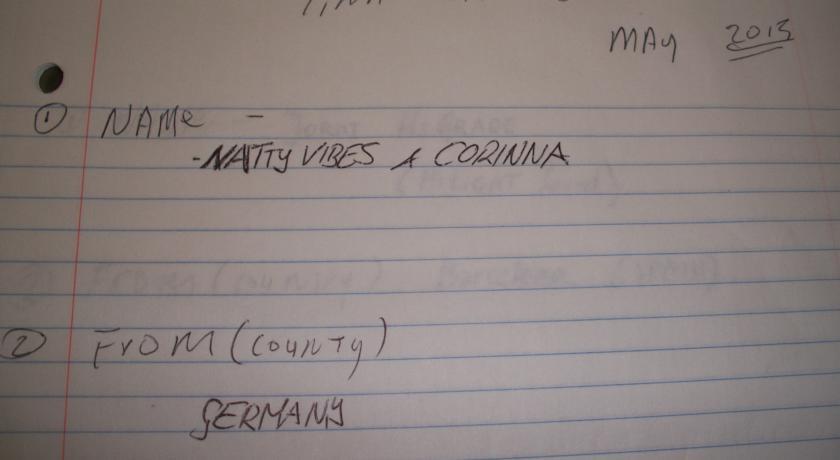 MAy 2013
① NAMe -
-NATTY VIBES & CORINNA
② FrOM (COUNTy)
GERMANY